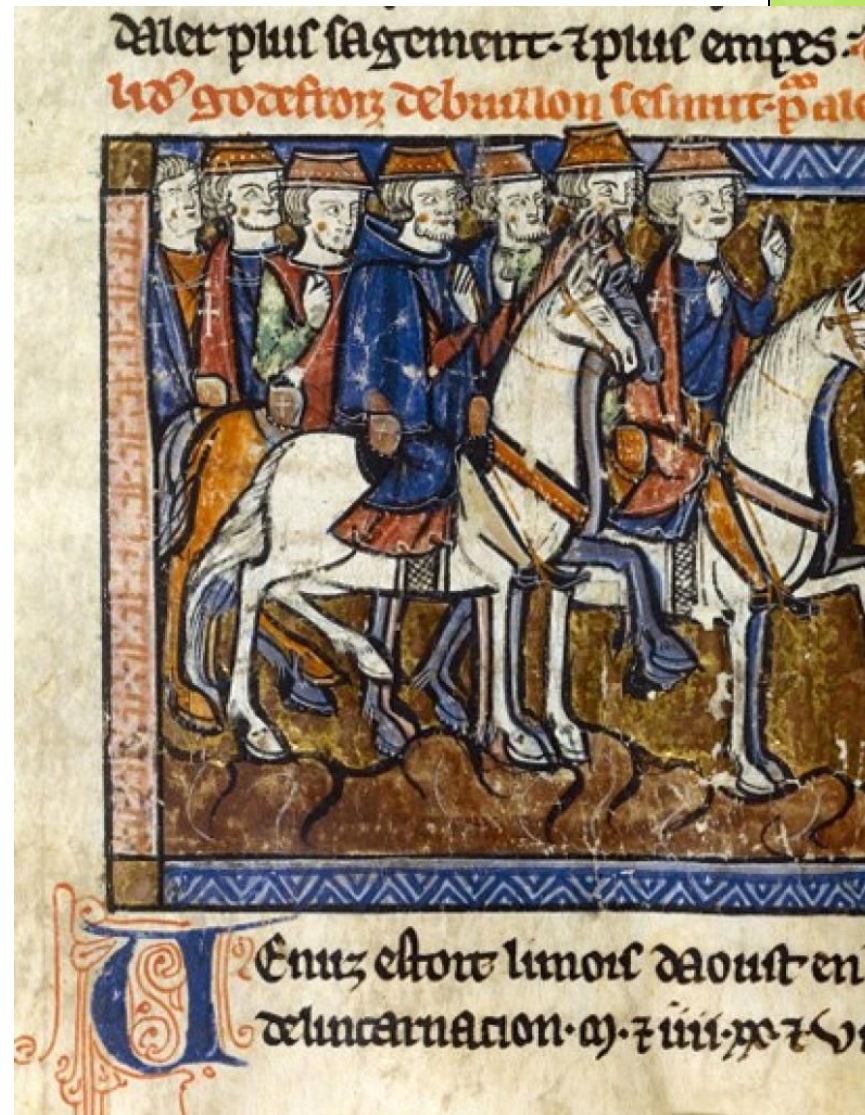 daler plus sagement · ⁊ plus empes · ⁊
li dꝰ godefroiz debuillon sesmut · p̃ ale
VEnuz estoit limois daoust en
delincarnacion · m · ⁊ iiii · xx · ⁊ vi